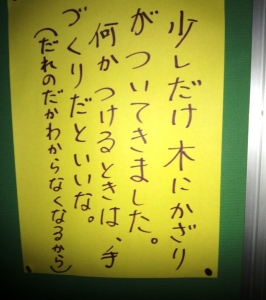 少しだけ木にかざり
がついてきました。
何かつけるときは、手
づくりだといいな。
(だれのだかわからなくなるから)